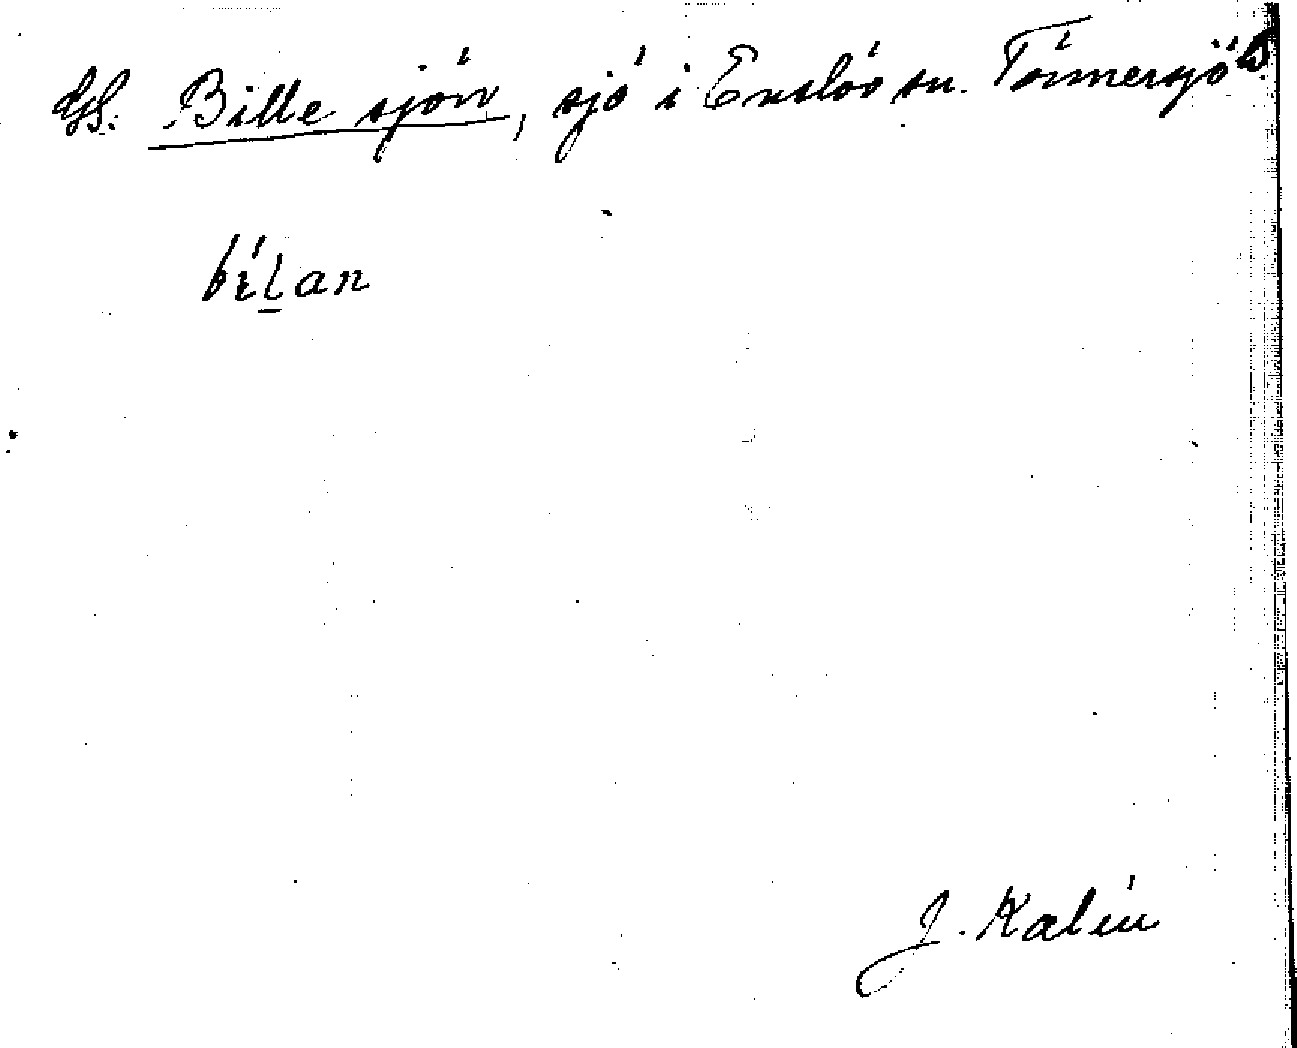 Hl. Bille sjön, sjö i Enslöv sn. Tönnersjö h.
bílan
J. Kalén